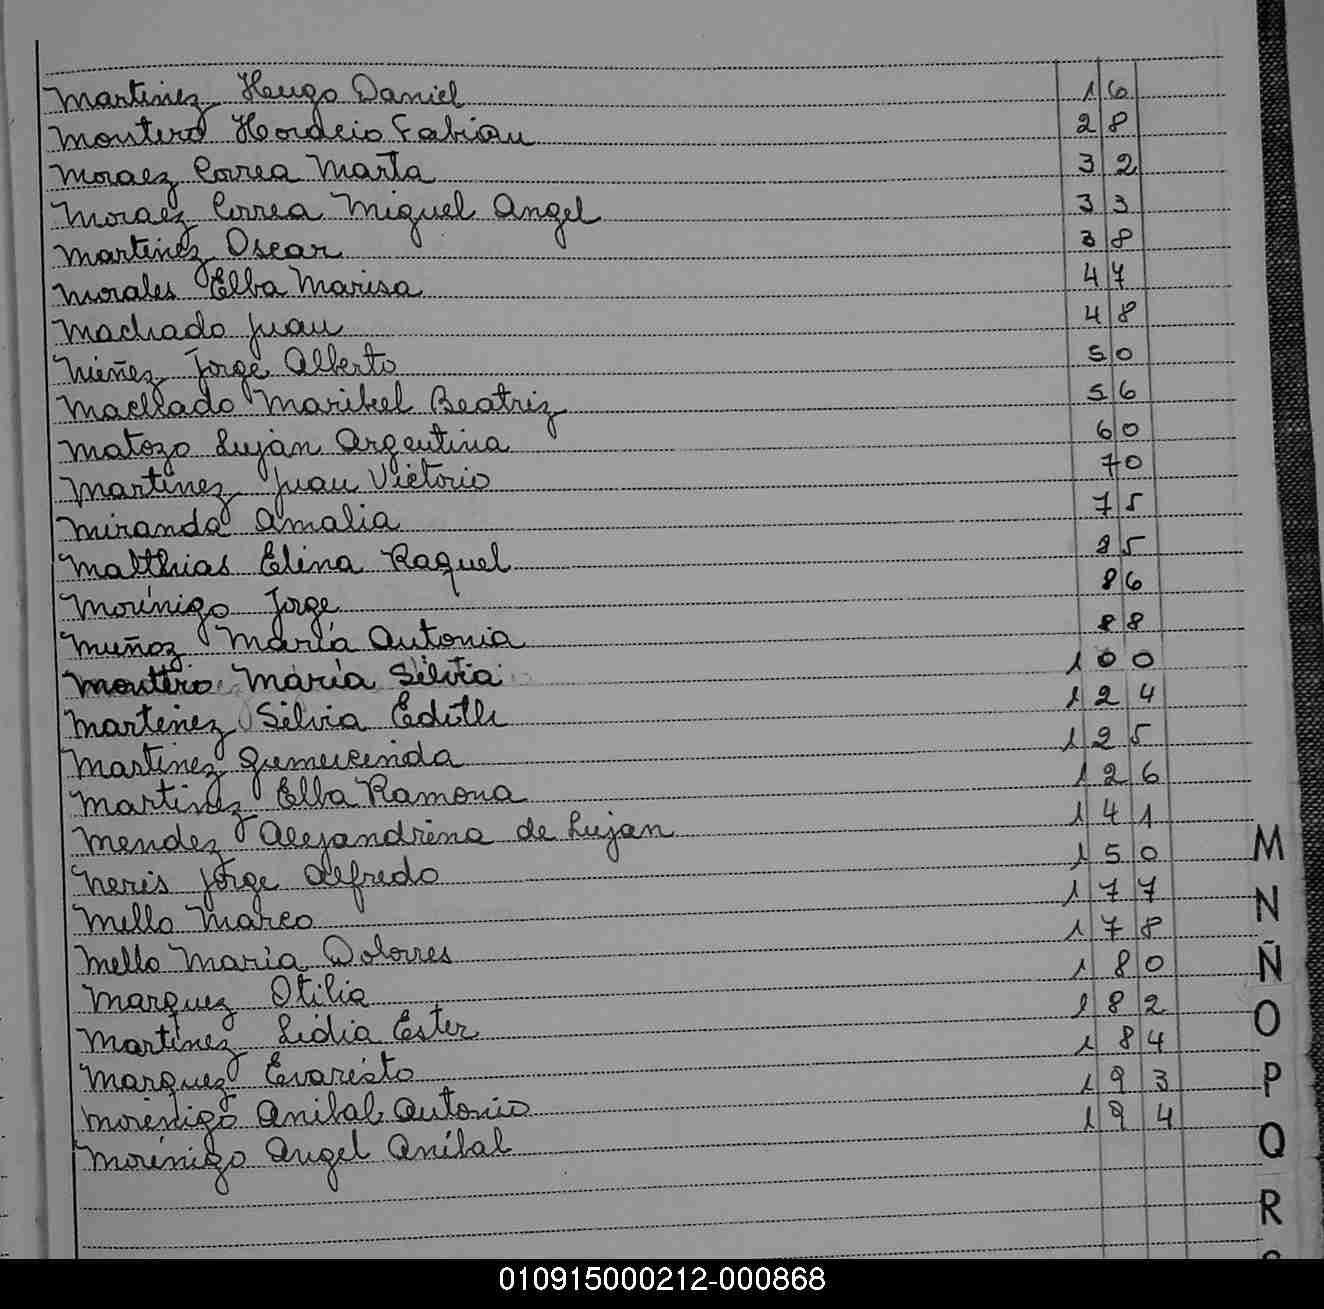 Martinez Hugo Daniel 16
Montero Horacio Fabian 28
Moraez Correa Marta 32
Moraez Correa Miguel Angel 33
Martinez Oscar 38
Morales Elba Marisa 47
Machado Juan 48
Nuñez Jorge Alberto 50
Machado Maribel Beatriz 56
Matozo Luján Argentina 60
Martínez Juan Victorio 70
Miranda Amalia 75
Matthias Elina Raquel 85
Morínigo Jorge 86
Muñoz María Antonia 88
Montero María Silvia 100
Martinez Silvia Edith 124
Martinez Gumercinda 125
Martinez Elba Ramona 126
Mendez Alejandrina de Lujan 141
Neris Jorge Alfredo 150
Mello Marco 177
Mello María Dolores 178
Marquez Otilia 180
Martínez Lidia Ester 182
Marquez Evaristo 184
Morinigo Anibal Antonio 193
Morinigo Angel Anibal 194
M
N
Ñ
O
P
Q
R
010915000212-000868